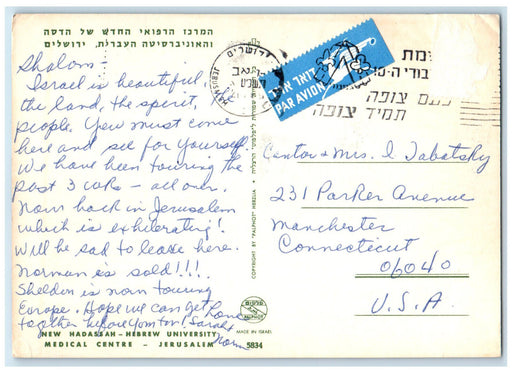 המרכז הרפואי החדש של הדסה
והאוניברסיטה העברית, ירושלים
Shalom -
Israel is beautiful
the land, the spirit,
people. You must come
here and see for yourself.
We have been touring the
past 3 wks - all over.
Now back in Jerusalem
which is exhilerating!
Will be sad to leave here.
Norman is sold!!!
Sheldon is now touring
Europe. Hope we can get
together before Yom tov! Sarah
Norm
NEW HADASSAH - HEBREW UNIVERSITY
MEDICAL CENTRE - JERUSALEM 5834
COPYRIGHT BY "PALPHOT" HERZLIA
PALPHOT
MADE IN ISRAEL
ירושלים
JERUSALEM
דואר אויר
PAR AVION
צופה
תמיד צופה
Cantor & Mrs. I Tabatsky
231 Parker Avenue
Manchester
Connecticut
06040
U.S.A.